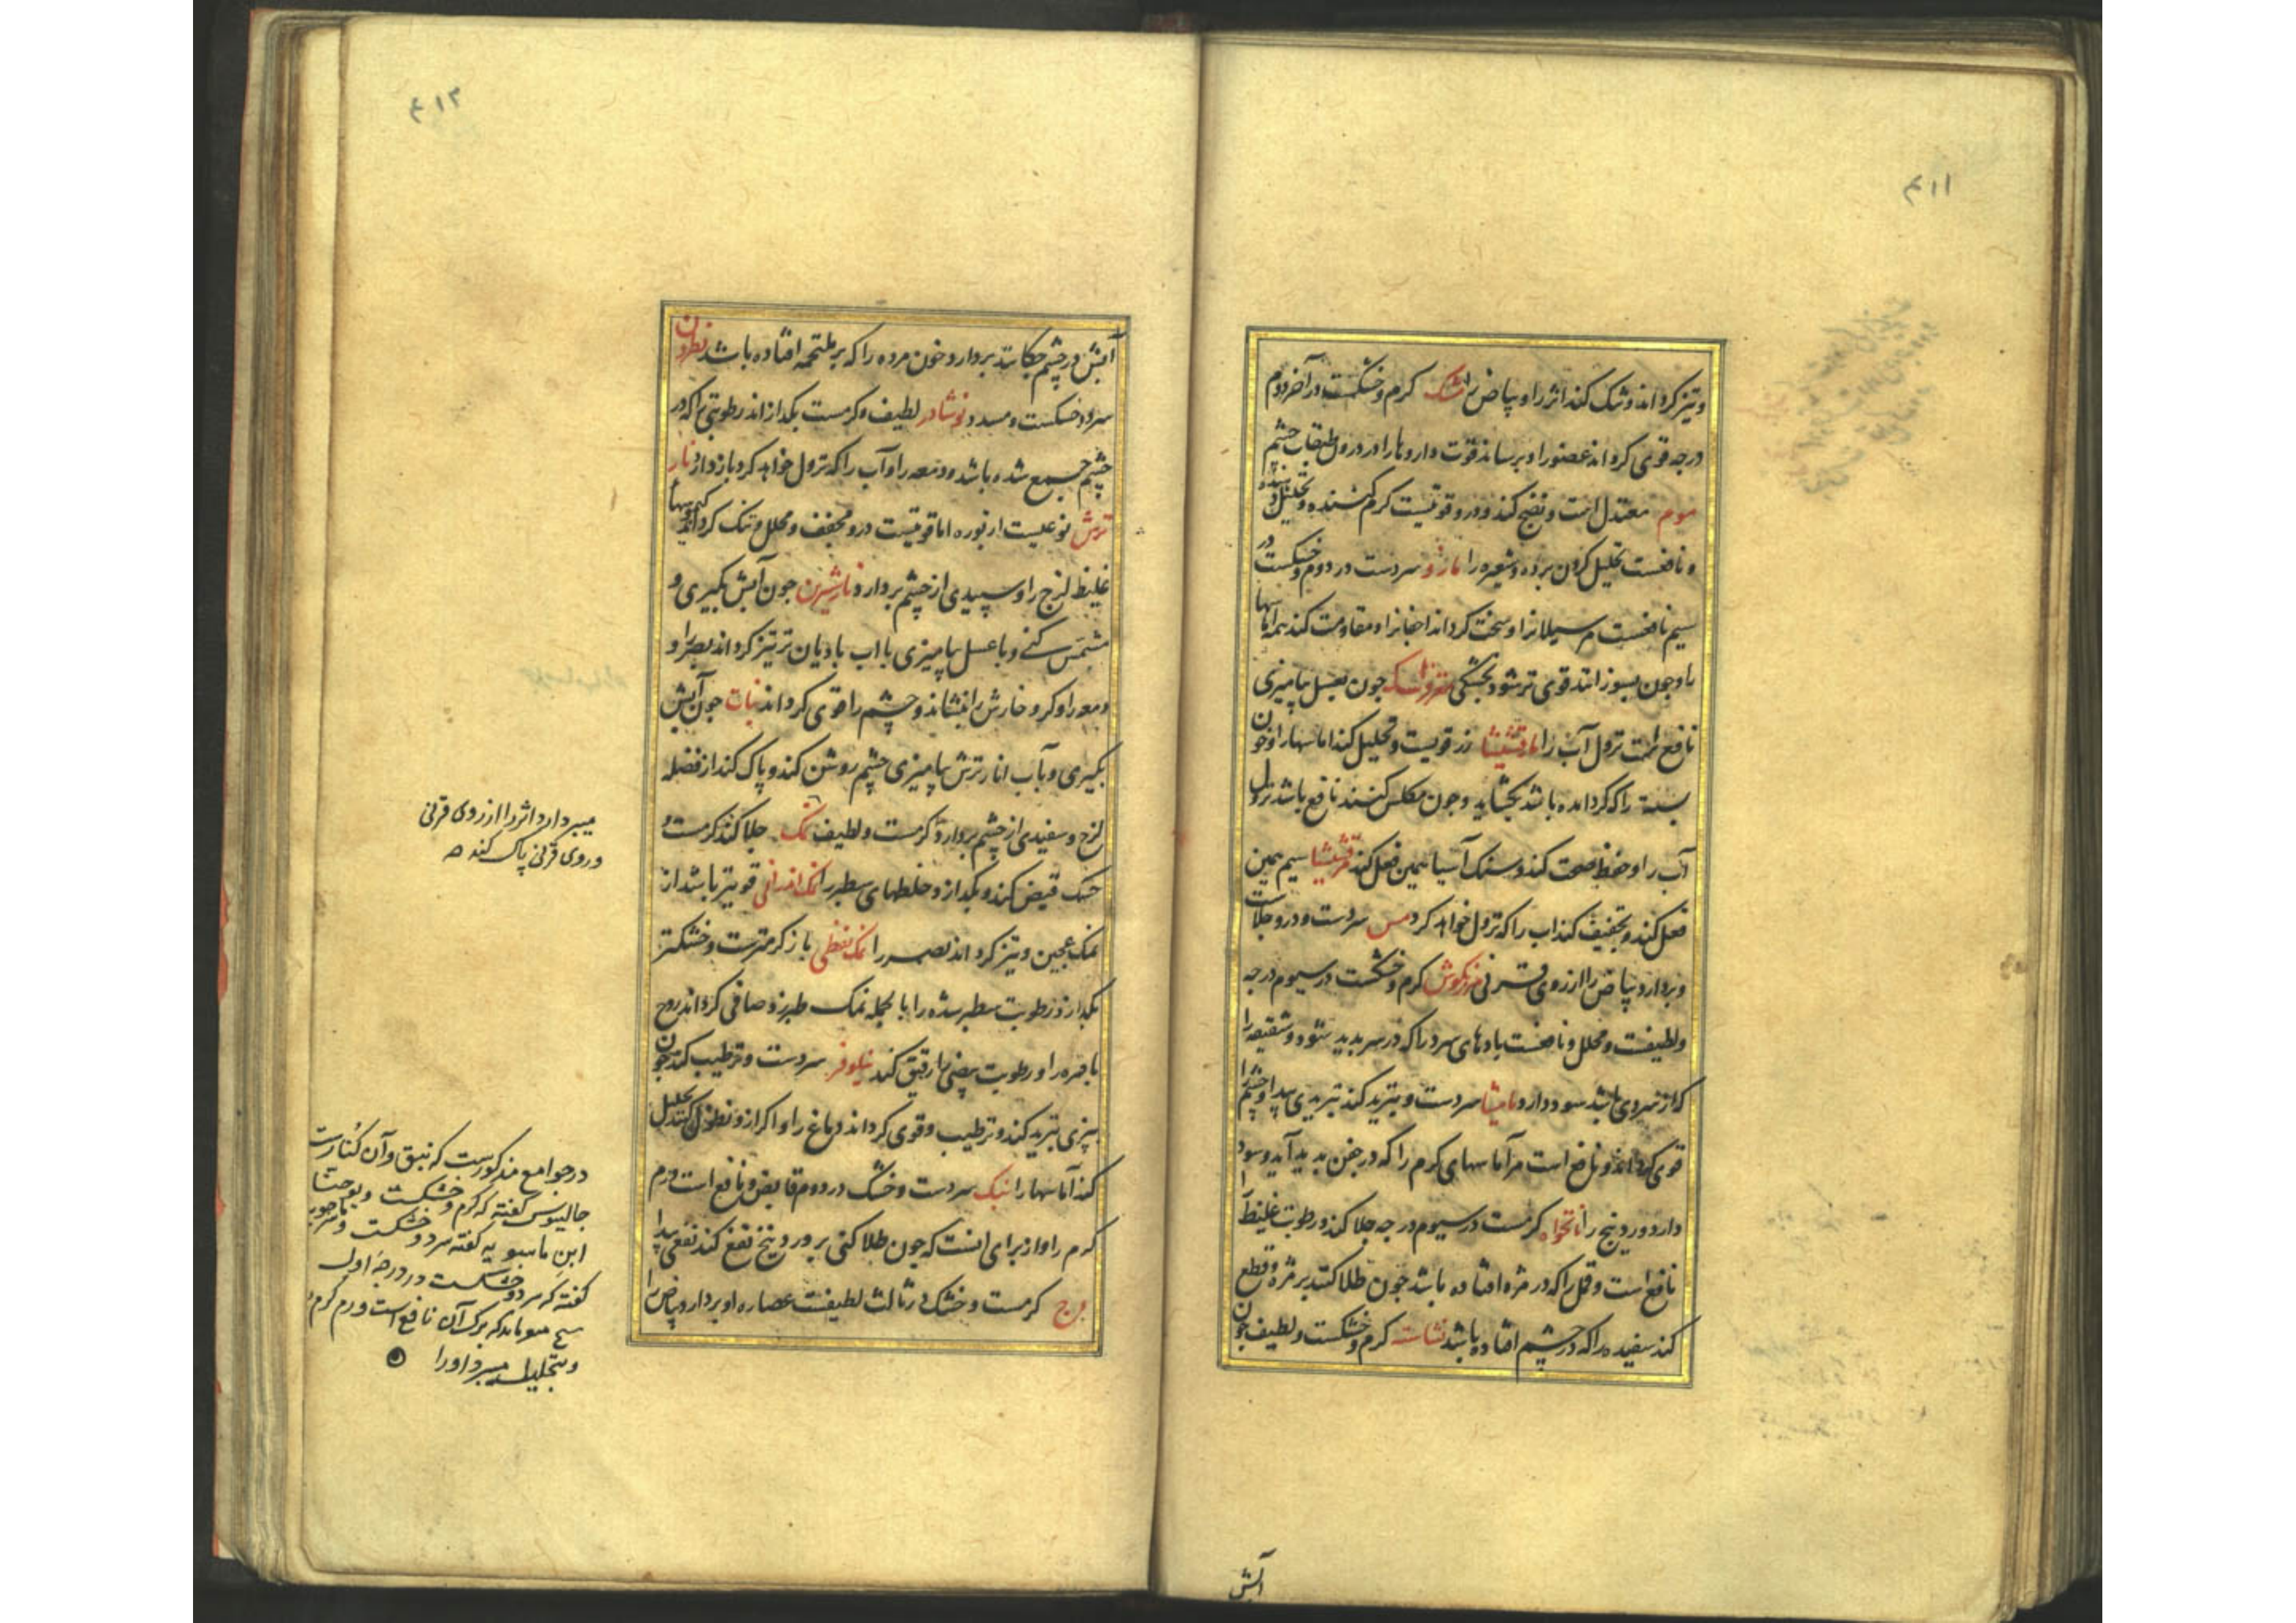 ۴۱۱
و تیز کرداند و تنک کند اثر را و بیاض را مشک کرم و خشکست در آخر دوم
درجه قوی کرداند عضو را و برساند قوت داروها را در درون طبقات چشم
موم معتدل است و نضج کند و درو قوتیست کرم کننده و تحلیل
و نافعست تحلیل کردن برده و شعیره را مازو سردست در دوم و خشکست در
سیم نافعست مر سیلانرا و سخت کرداند اجفانرا و مقاومت کند همه آماسها
را و چون بسوزانند قوی تر شود بخشکی چون بعسل بیامیزی
نافع است نزول آب را مارقشیشا زر قویست و تحلیل کند آماسها را و خون
بسته را که کرد آمده باشد بکشاید و چون مکلس کنند نافع باشد نزول
آب را و حفظ صحت کند و سنک آسیا همین فعل کند مرقشیشا سیم همین
فعل کند و تجفیف کند اب را که نزول خواهد کرد مس سردست و درو جلاست
و بردارد بیاض را از روی قرنی مرزنکوش کرم و خشکست در سیوم درجه
و لطیفست و محلل و نافعست بادهای سرد را که در سر پدید شود و شقیقه را
که از سردی باشد سود دارد مامیثا سردست و تبرید کند تبریدی پیدا و چشم را
قوی کرداند و نافع است مر آماسهای کرم را که در جفن پدید آید و سود
دارد وردینج را نانخواه کرمست در سیوم درجه جلا کند رطوبت غلیظ را
نافع است و قمل را که در مژه افتاده باشد چون طلا کنند بر مژه و قطع
کند سفیده را که در چشم افتاده باشد نشاسته کرم و خشکست و لطیف چون
آبش
۴۱۲
آبش در چشم چکانند بردارد خون مرده را که بر ملتحمه افتاده باشد نطرون
سرد و خشکست و مسدد نوشادر لطیف و کرمست بکدازاند رطوبتی را که در
چشم جمع شده باشد و دمعه را و آب را که نزول خواهد کرد باز دارد نار
ترش نوعیست از بوره اما قوتیست درو مجفف و محلل و تنک کرداند کیموسها
غلیظ لزج را و سپیدی از چشم بردارد نار شیرین چون آبش بکیری و
مشمس کنی و با عسل بیامیزی با اب بادیان تر تیز کرداند بصر را و
دمعه را و کر و خارش را بنشاند و چشم را قوی کرداند نبات چون آبش
بکیری و بآب انار ترش بیامیزی چشم روشن کند و پاک کند از فضله
لزج و سفیدی از چشم بردارد و کرمست و لطیف نمک جلا کند کرمست و
خشک قبض کند و بکدازد خلطهای سطبر را نمک اندرانی قویتر باشد از
نمک عجین و تیز کرداند بصر را نمک نفطی باز کرمترست و خشکتر
بکدازد رطوبت سطبر شده را بالجمله نمک طبرزد صافی کرداند روح
باصره را و رطوبت بیضی را رقیق کند نیلوفر سردست و ترطیب کند چون
بپزی تبرید کند و ترطیب و قوی کرداند دماغ را و اکر ازو نطول کنند تحلیل
کند آماسها را نبک سردست و خشک در دوم قابض و نافع است ورم
کرم را و از برای انست که چون طلا کنی بر وردینج نفع کند نفعی پیدا
وج کرمست و خشک در ثالث لطیفست عصاره او بردارد بیاض را
میبردارد اثر را از روی قرنی
و روی قرنی پاک کند
در جوامع مذکورست که نبق و آن کنارست
جالینوس کفته که کرم و خشکست و یوحنا
ابن ماسویه کفته سرد و خشکست و
کفته که سرد و خشکست در درجهٔ اول
که برک آن نافع است ورم کرم
و بتحلیل میبرد او را